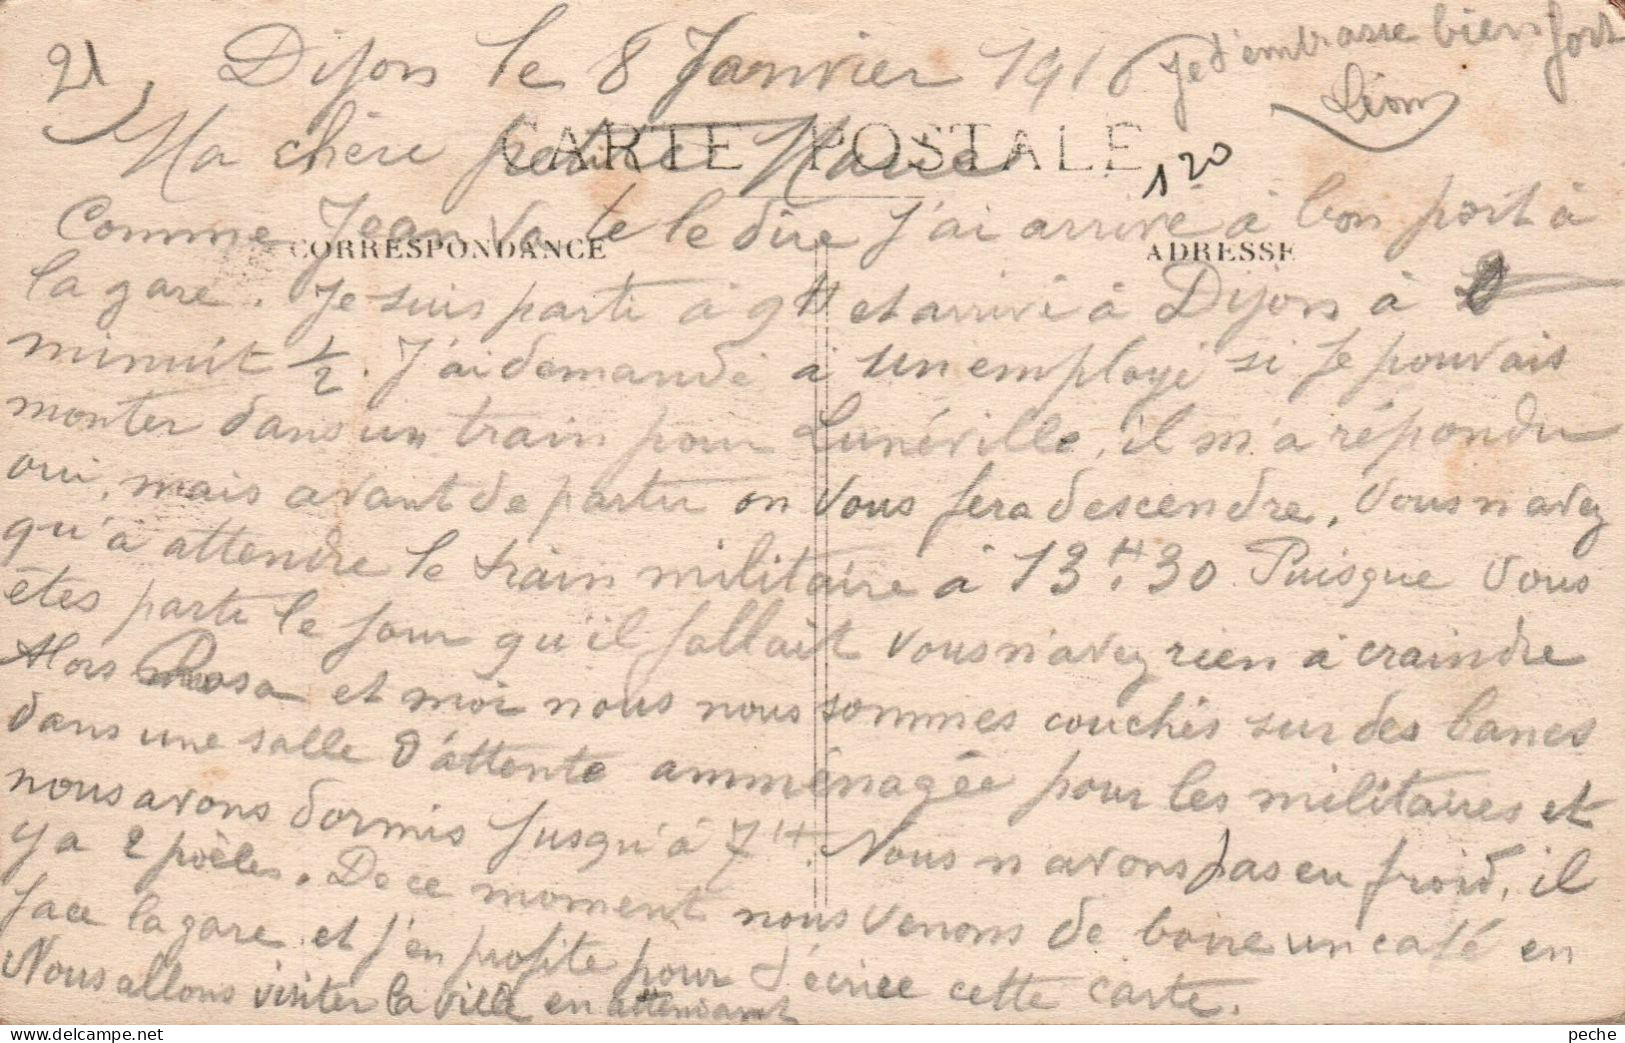 21
Dijon le 8 Janvier 1916
Je t'embrasse bien fort
Léon
CARTE POSTALE
Ma chère petite Marie
120
Comme Jean va te le dire j'ai arrivé à bon port à
CORRESPONDANCE
ADRESSE
la gare. Je suis parti à 9H et arrivé à Dijon à
minuit 1/2. J'ai demandé à un employé si je pouvais
monter dans un train pour Lunéville, il m'a répondu
oui, mais avant de partir on vous fera descendre. Vous n'avez
qu'à attendre le train militaire à 13H.30 Puisque vous
êtes parti le jour qu'il fallait vous n'avez rien à craindre
Alors Rosa et moi nous nous sommes couchés sur des bancs
dans une salle d'attente amménagée pour les militaires et
nous avons dormis jusqu'à 7H. Nous n'avons pas eu froid, il
y a 2 poêles. De ce moment nous venons de boire un café en
face la gare et j'en profite pour t'écrire cette carte.
Nous allons visiter la ville en attendant
peche